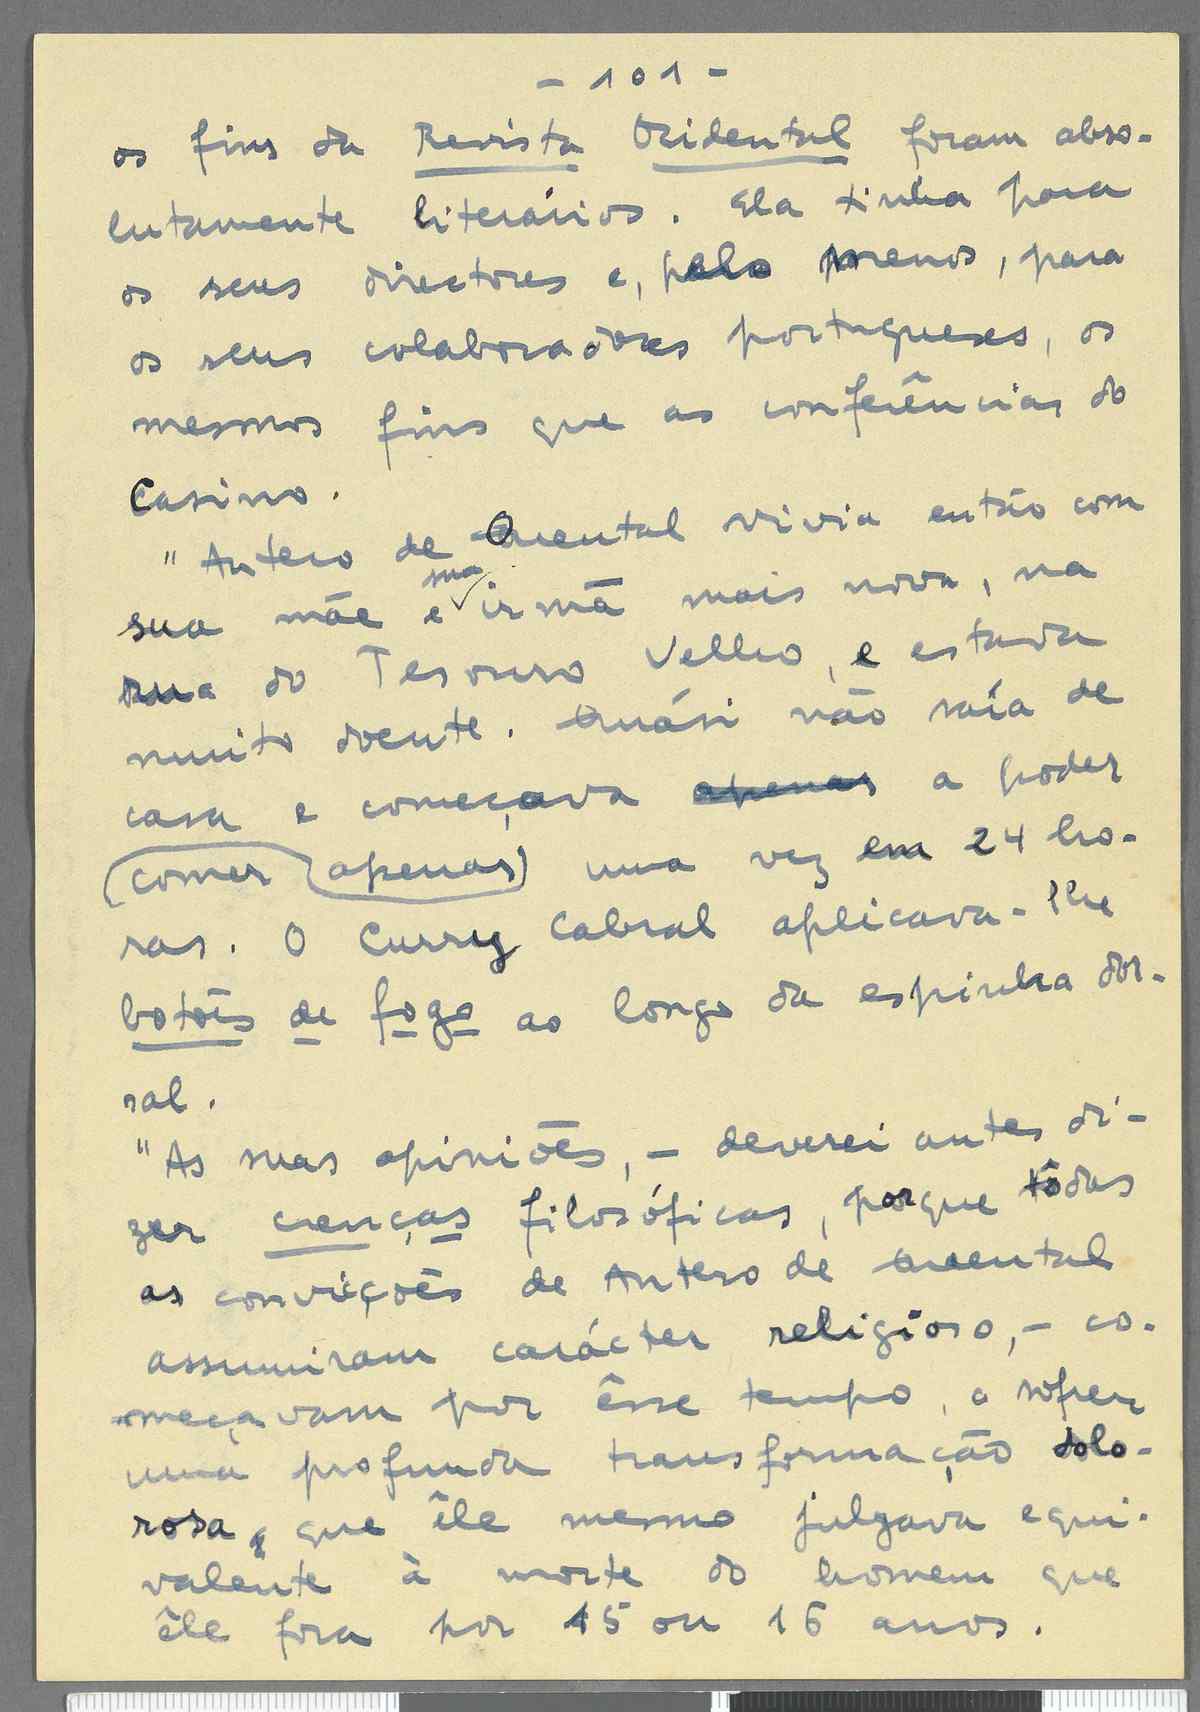 - 101 -
os fins da Revista Ocidental foram abso-
lutamente literários. Ela tinha para
os seus directores e, pelo menos, para
os seus colaboradores portugueses, os
mesmos fins que as conferências do
Casino.
"Antero de Quental vivia então com
sua
sua mãe e irmã mais nova, na
rua do Tesouro Velho, e estava
muito doente. Quási não saía de
casa e começava apenas a poder
comer apenas uma vez em 24 ho-
ras. O Curry Cabral aplicava-lhe
botões de fogo ao longo da espinha dor-
sal.
"As suas opiniões, - deverei antes di-
zer crenças filosóficas, porque tôdas
as convicções de Antero de Quental
assumiram carácter religioso, - co-
meçavam por êsse tempo, a sofrer
uma profunda transformação dolo-
rosa, que êle mesmo julgava equi-
valente à morte do homem que
êle fora por 15 ou 16 anos.